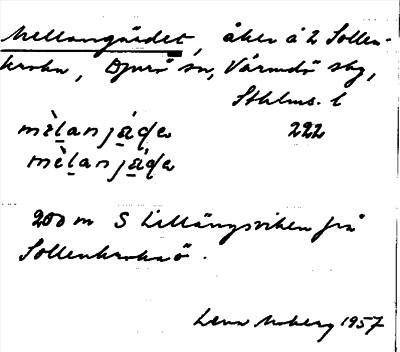 Mellangärdet, åker å 2 Sollen-
kroka, Djurö sn, Värmdö skg,
Sthlms. l
mèlanjáḍe 222
mèlanjáḍe
200 m S Lillängsviken från
Sollenkroka ö.
Lena Moberg 1957